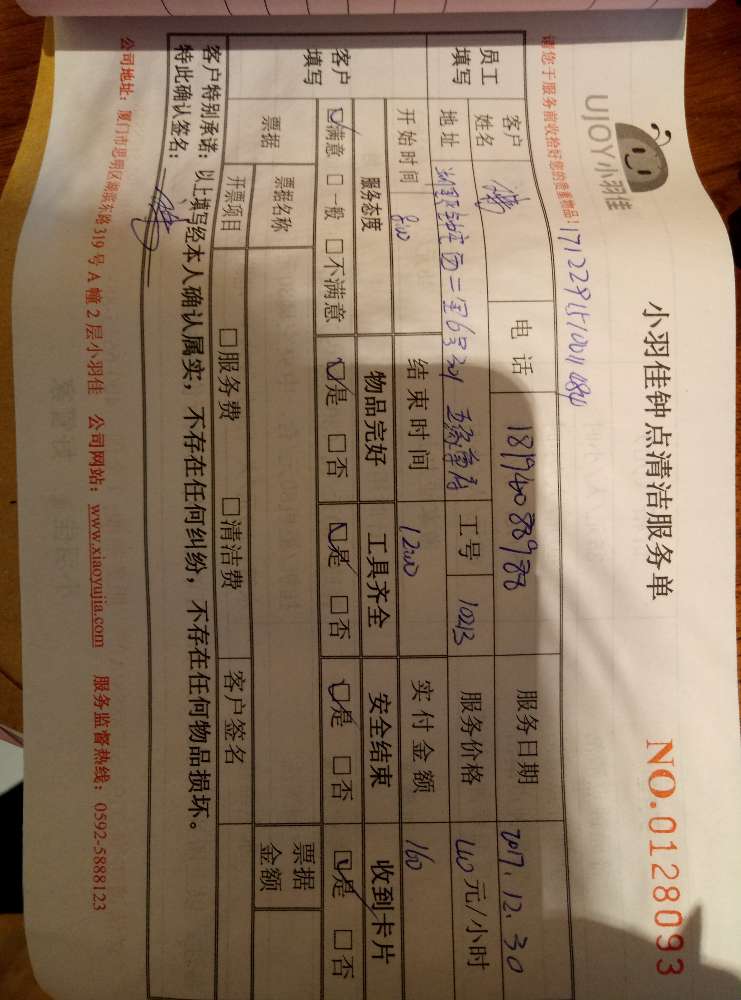 UJOY小羽佳
小羽佳钟点清洁服务单
NO.0128093
请您于服务前收拾好您的贵重物品!
员工填写
客户姓名 电话 18194088988 服务日期 2017.12.30
地址 工号 10213 服务价格 40元/小时
开始时间 8:00 结束时间 12:00 实付金额 160
客户填写
服务态度 物品完好 工具齐全 安全结束 收到卡片
☑满意 □一般 □不满意 ☑是 □否 ☑是 □否 ☑是 □否 ☑是 □否
票据 票据名称 票据金额
开票项目 □服务费 □清洁费 客户签名
客户特别承诺：以上填写经本人确认属实，不存在任何纠纷，不存在任何物品损坏。
特此确认签名：
公司地址：厦门市思明区湖滨东路319号A幢2层小羽佳 公司网站：www.xiaoyujia.com 服务监督热线：0592-5888123